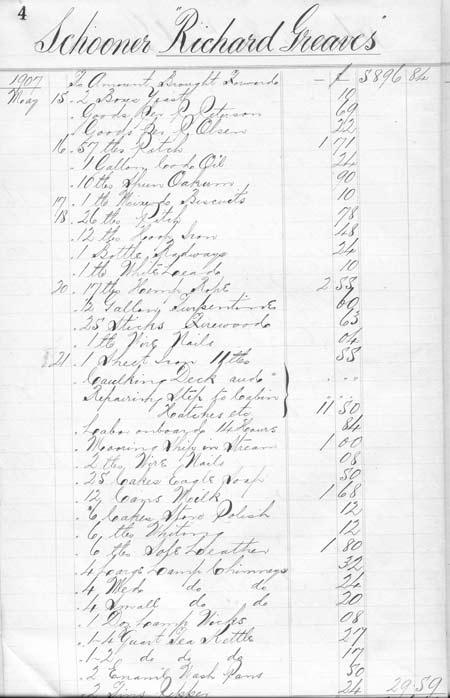 4
Schooner "Richard Greaves"
1907 To Amount Brought Forward – £ 3896 84
May 15 . 2 Boxes Yeast 10
. Goods Per P. Peterson 69
. Goods Per P. Olsen 22
16 . 57 lbs Pitch 1 71
. 1 Gallon Coal Oil 24
. 10 lbs Spun Oakum 90
17 . 1 lb Mixed Biscuits 10
18 . 26 lbs Pitch 78
. 12 lbs Hoop Iron 48
. 1 Bottle Radways 24
. 1 lb White Lead 10
20 . 17 lbs Hemp Rope 2 55
. ½ Gallon Turpentine 60
. 25 Sticks Firewood 63
. 1 lb Wire Nails 04
21 . 1 Sheet Iron 11 lbs 55
. Caulking Deck and
Repairing Step to Cabin
Hatches etc 11 50
. Labor onboard 14 Hours 84
. Mooring Ship in Stream 1 00
. 2 lbs Wire Nails 08
. 25 Cakes Eagle Soap 50
. 12 Cans Milk 1 68
. 6 Cakes Stove Polish 12
. 6 lbs Whiting 12
. 6 lbs Sole Leather 1 80
. 4 Large Lamp Chimneys 32
. 4 Med do do 24
. 4 Small do do 20
. 1 Doz Lamp Wicks 08
. 1-4 Quart Tea Kettle 27
. 1-2 do do do 17
. 2 Enamel Wash Pans 50
. 2 Tins Pepper 24 29.59